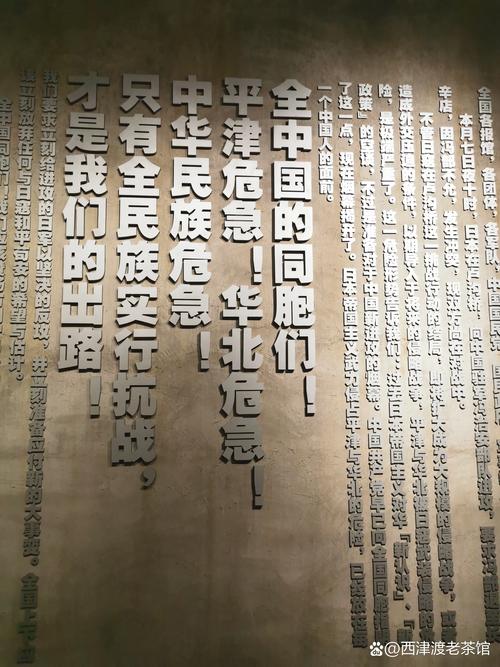 全国各报馆，各团体，各军队，中国国民党，国民
本月七日夜十时，日本在卢沟桥，向中国驻军冯治安部队进攻，要求冯部退至
辛店，因冯部不允，发生冲突，现双方尚在对战中。
不管日寇在卢沟桥这一挑战行动的结局，即将扩大成为大规模的侵略战争，或
造成外交压迫的条件，以期导入于将来的侵略战争，平津与华北被日寇武装侵略的
险，是极端严重了。这一危险形势告诉我们：过去日本帝国主义对华「新认识」、「新
政策」的空谈，不过是准备对于中国新进攻的烟幕。中国共产党早已向全国同胞指
了这一点，现在烟幕揭开了。日本帝国主义武力侵占平津与华北的危险，已经放在每
一个中国人的面前。
全中国的同胞们！
平津危急！华北危急！
中华民族危急！
只有全民族实行抗战，
才是我们的出路！
我们要求立刻给进攻的日军以坚决的反攻，并立刻准备应付新的大事变。全国上下应
该立刻放弃任何与日寇和平苟安的希望与估计。
全中国同胞们！我们应
百家号/西津渡老茶馆